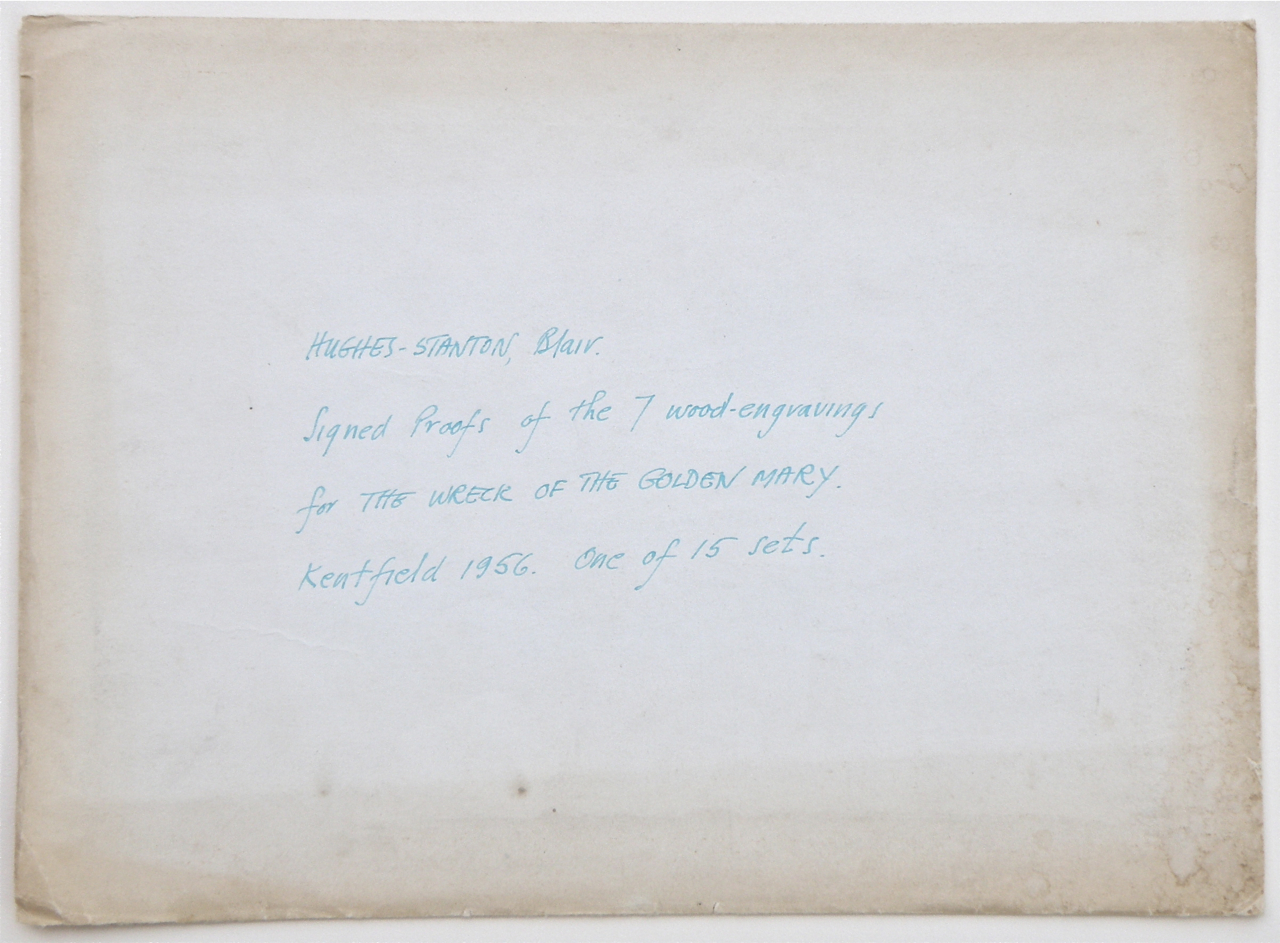 HUGHES-STANTON, Blair.
Signed Proofs of the 7 wood-engravings
for THE WRECK OF THE GOLDEN MARY.
Kentfield 1956. One of 15 sets.